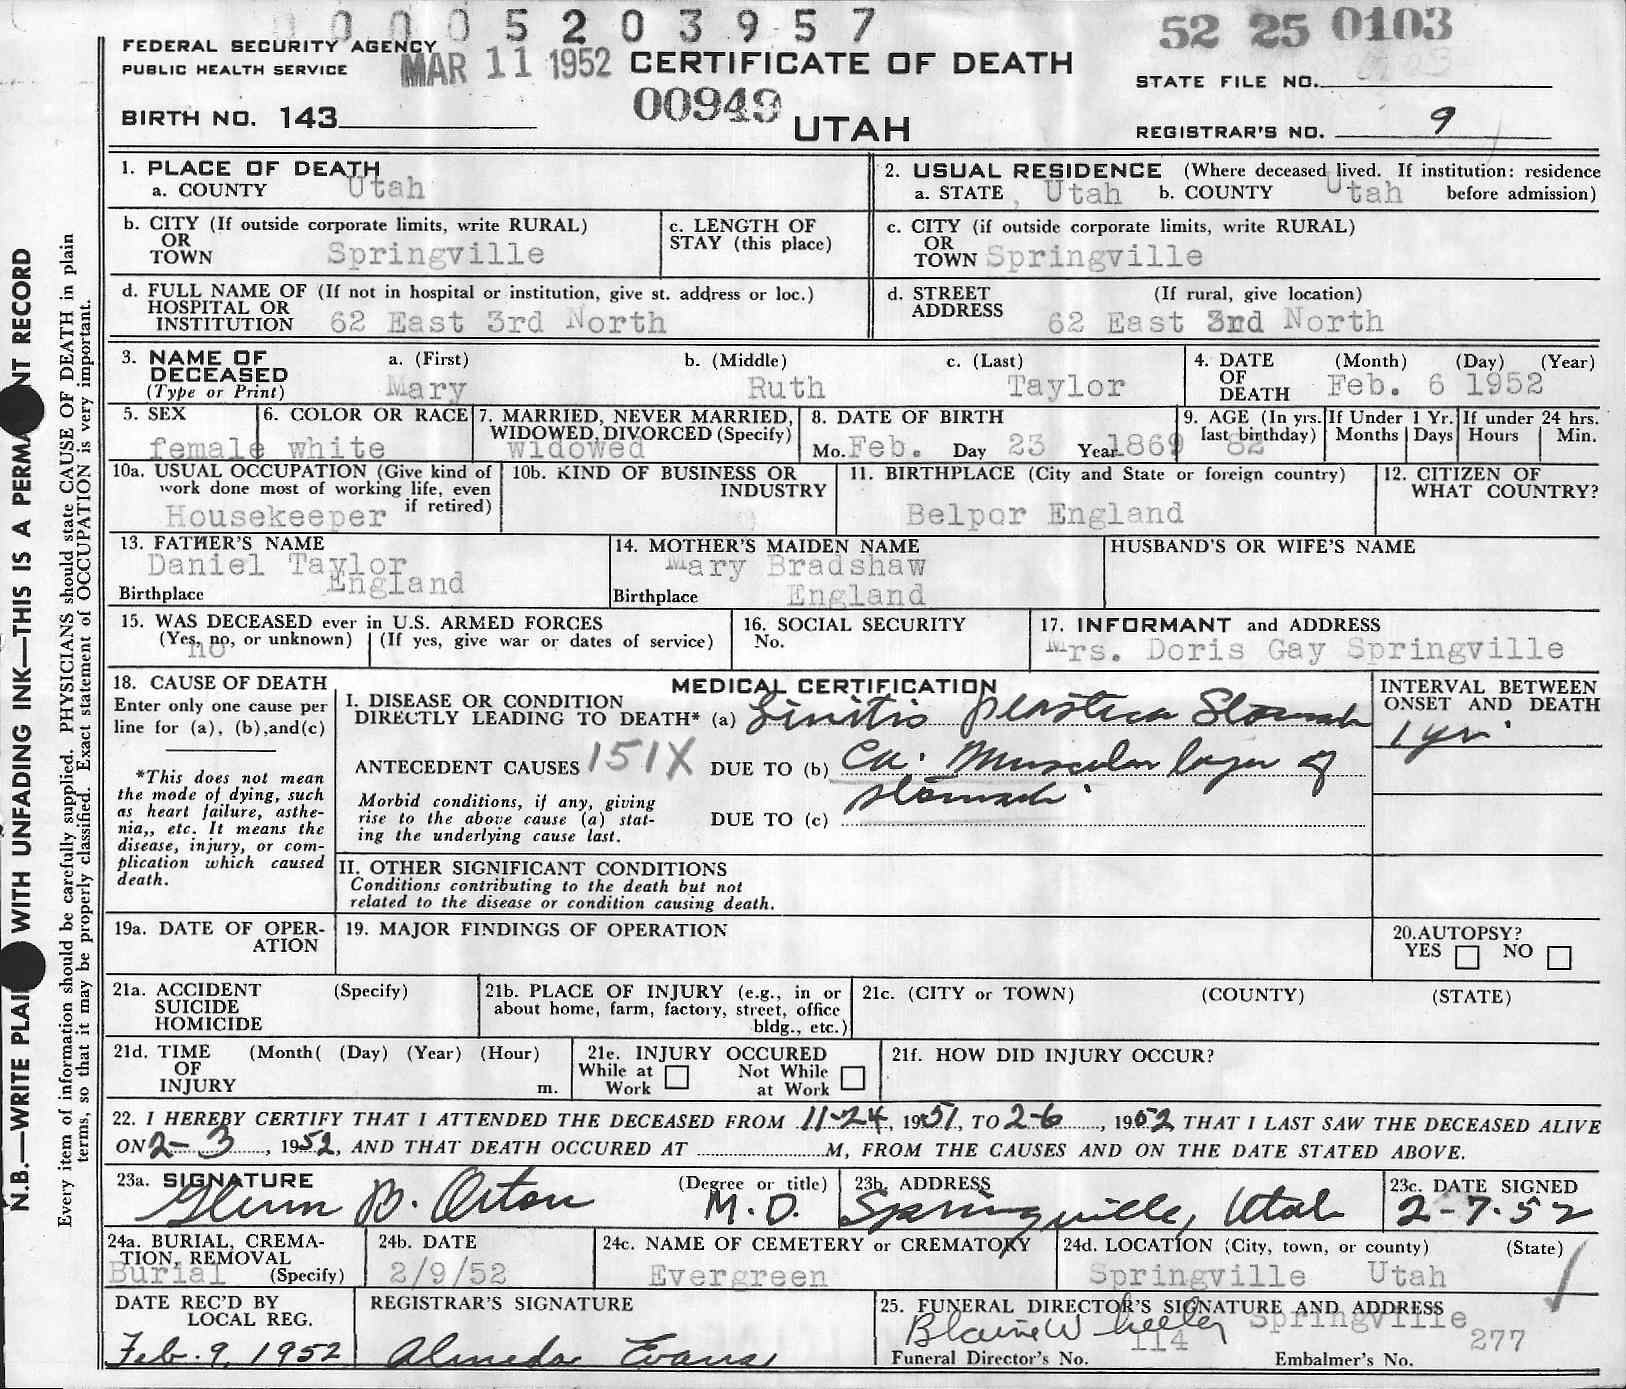 0 0 0 5 2 0 3 9 5 7
52 25 0103
FEDERAL SECURITY AGENCY
PUBLIC HEALTH SERVICE
MAR 11 1952
CERTIFICATE OF DEATH
STATE FILE NO.
BIRTH NO. 143
00949
UTAH
REGISTRAR'S NO. 9
1. PLACE OF DEATH
a. COUNTY Utah
2. USUAL RESIDENCE (Where deceased lived. If institution: residence
a. STATE Utah b. COUNTY Utah before admission)
b. CITY (If outside corporate limits, write RURAL)
OR
TOWN Springville
c. LENGTH OF
STAY (this place)
c. CITY (if outside corporate limits, write RURAL)
OR
TOWN Springville
d. FULL NAME OF (If not in hospital or institution, give st. address or loc.)
HOSPITAL OR
INSTITUTION 62 East 3rd North
d. STREET (If rural, give location)
ADDRESS 62 East 3rd North
3. NAME OF
DECEASED
(Type or Print)
a. (First) b. (Middle) c. (Last)
Mary Ruth Taylor
4. DATE (Month) (Day) (Year)
OF
DEATH Feb. 6 1952
5. SEX
female
6. COLOR OR RACE
white
7. MARRIED, NEVER MARRIED,
WIDOWED, DIVORCED (Specify)
widowed
8. DATE OF BIRTH
Mo. Feb. Day 23 Year 1869
9. AGE (In yrs.
last birthday)
82
If Under 1 Yr.
Months Days
If under 24 hrs.
Hours Min.
10a. USUAL OCCUPATION (Give kind of
work done most of working life, even
if retired)
Housekeeper
10b. KIND OF BUSINESS OR
INDUSTRY
11. BIRTHPLACE (City and State or foreign country)
Belpor England
12. CITIZEN OF
WHAT COUNTRY?
13. FATHER'S NAME
Daniel Taylor
Birthplace England
14. MOTHER'S MAIDEN NAME
Mary Bradshaw
Birthplace England
HUSBAND'S OR WIFE'S NAME
15. WAS DECEASED ever in U.S. ARMED FORCES
(Yes, no, or unknown) (If yes, give war or dates of service)
no
16. SOCIAL SECURITY
No.
17. INFORMANT and ADDRESS
Mrs. Doris Gay Springville
18. CAUSE OF DEATH
Enter only one cause per
line for (a), (b),and(c)
*This does not mean
the mode of dying, such
as heart failure, asthe-
nia,, etc. It means the
disease, injury, or com-
plication which caused
death.
MEDICAL CERTIFICATION
I. DISEASE OR CONDITION
DIRECTLY LEADING TO DEATH* (a) Linitis plastica Stomach
ANTECEDENT CAUSES 151X DUE TO (b) Ca. Muscular layer of
stomach.
Morbid conditions, if any, giving
rise to the above cause (a) stat-
ing the underlying cause last.
DUE TO (c)
INTERVAL BETWEEN
ONSET AND DEATH
1 yr.
II. OTHER SIGNIFICANT CONDITIONS
Conditions contributing to the death but not
related to the disease or condition causing death.
19a. DATE OF OPER-
ATION
19. MAJOR FINDINGS OF OPERATION
20.AUTOPSY?
YES NO
21a. ACCIDENT (Specify)
SUICIDE
HOMICIDE
21b. PLACE OF INJURY (e.g., in or
about home, farm, factory, street, office
bldg., etc.)
21c. (CITY or TOWN) (COUNTY) (STATE)
21d. TIME (Month( (Day) (Year) (Hour)
OF
INJURY m.
21e. INJURY OCCURED
While at Not While
Work at Work
21f. HOW DID INJURY OCCUR?
22. I HEREBY CERTIFY THAT I ATTENDED THE DECEASED FROM 11-24, 1951, TO 2-6, 1952 THAT I LAST SAW THE DECEASED ALIVE
ON 2-3, 1952, AND THAT DEATH OCCURED AT M, FROM THE CAUSES AND ON THE DATE STATED ABOVE.
23a. SIGNATURE (Degree or title)
Glenn B. Orton M.D.
23b. ADDRESS
Springville, Utah
23c. DATE SIGNED
2-7-52
24a. BURIAL, CREMA-
TION, REMOVAL
Burial (Specify)
24b. DATE
2/9/52
24c. NAME OF CEMETERY or CREMATORY
Evergreen
24d. LOCATION (City, town, or county) (State)
Springville Utah
DATE REC'D BY
LOCAL REG.
Feb. 9, 1952
REGISTRAR'S SIGNATURE
Almeda Evans
25. FUNERAL DIRECTOR'S SIGNATURE AND ADDRESS
Blaine W Wheeler Springville
Funeral Director's No. 114 Embalmer's No. 277
N.B.—WRITE PLAI WITH UNFADING INK—THIS IS A PERMA NT RECORD
Every item of information should be carefully supplied. PHYSICIANS should state CAUSE OF DEATH in plain
terms, so that it may be properly classified. Exact statement of OCCUPATION is very important.